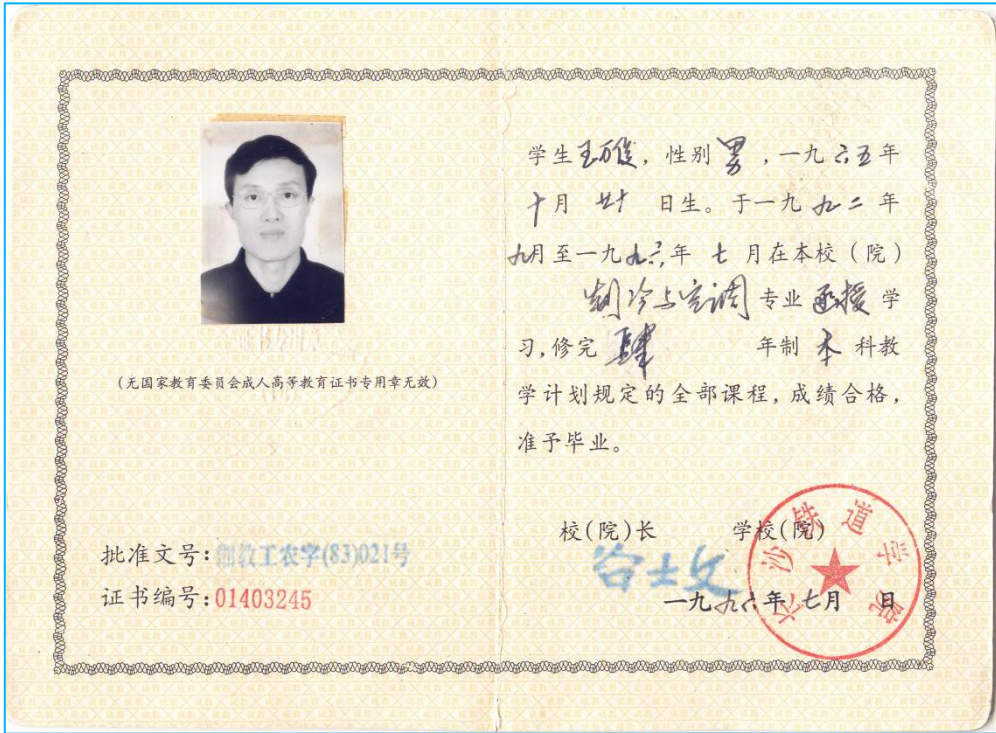 (无国家教育委员会成人高等教育证书专用章无效)
批准文号:湘教工农字(83)021号
证书编号:01403245
学生王俊,性别男,一九六五年
十月廿 日生。于一九九二年
九月至一九九六年 七 月在本校(院)
制冷与空调专业函授学
习,修完 肆 年制 本 科教
学计划规定的全部课程,成绩合格,
准予毕业。
校(院)长 学校(院)
一九九六年 七月 日
长沙铁道学院